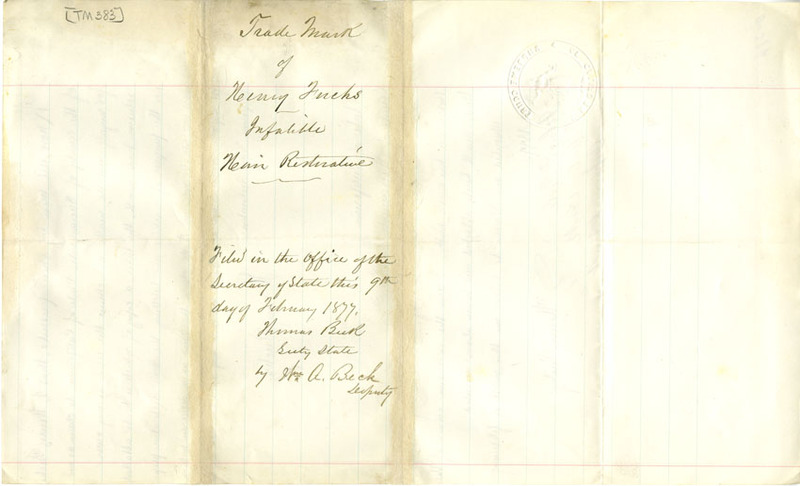 [TM 383]
Trade Mark
of
Henry Fuchs
Infalible
Hair Restorative
Filed in the office of the
Secretary of State this 9th
day of February 1877.
Thomas Beck
Secty State
by Wm A. Beck
Deputy